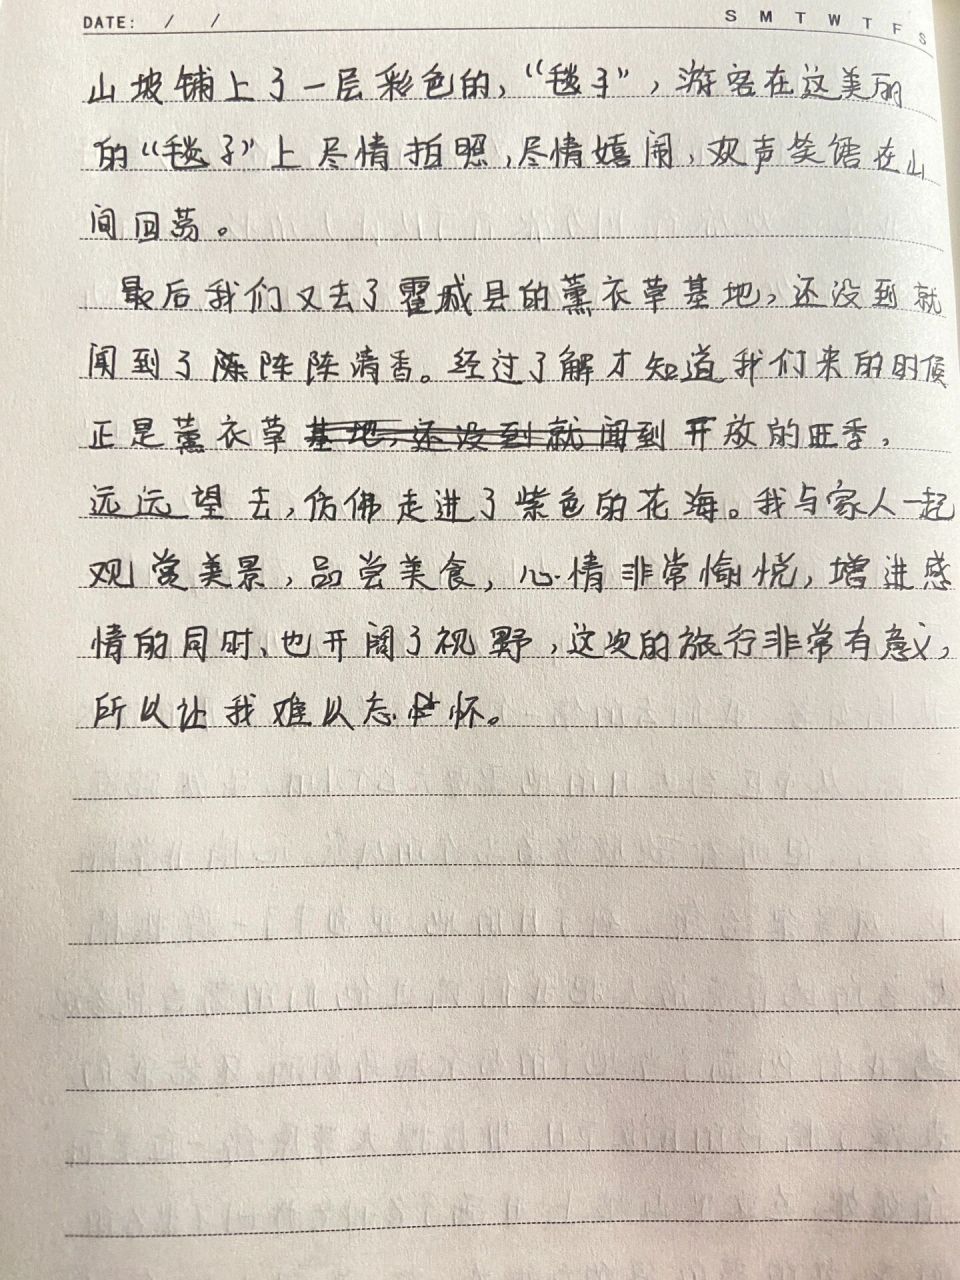 DATE: / /
S M T W T F S
山坡铺上了一层彩色的，“毯子”，游客在这美丽
的“毯子”上尽情拍照，尽情嬉闹，欢声笑语在山
间回荡。
最后我们又去了霍城县的薰衣草基地，还没到就
闻到了阵阵清香。经过了解才知道我们来的时候
正是薰衣草基地，还没到就闻到开放的旺季，
远远望去，仿佛走进了紫色的花海。我与家人一起
观赏美景，品尝美食，心情非常愉悦，增进感
情的同时、也开阔了视野，这次的旅行非常有意义，
所以让我难以忘怀。